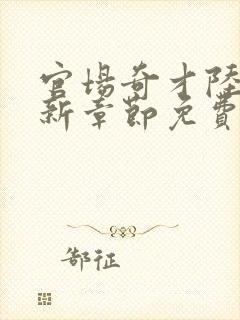 官場奇才陸
新章節免費
郜征